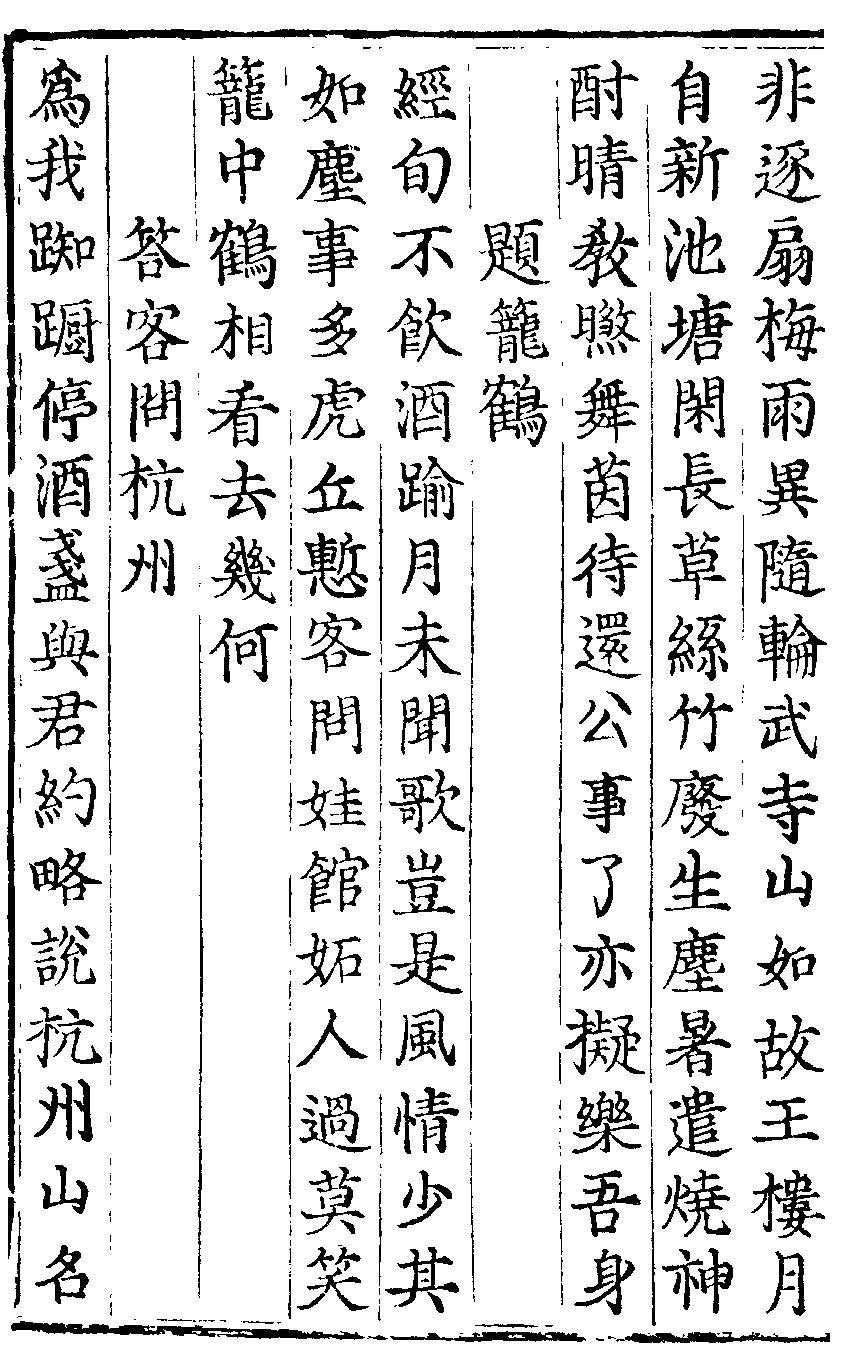 非逐扇梅雨異隨輪武寺山如故王樓月
自新池塘閑長草絲竹廢生塵暑遣燒神
酎晴教㬠舞茵待還公事了亦擬樂吾身
題籠鶴
經旬不飲酒踰月未聞歌豈是風情少其
如塵事多虎丘慙客問娃館妬人過莫笑
籠中鶴相看去幾何
答客問杭州
爲我踟蹰停酒盞與君約略說杭州山名